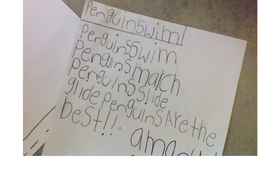 Penguinswim!
Penguinsswim
Penguins march
Penguins slide
glide penguinsAre the
best!!.